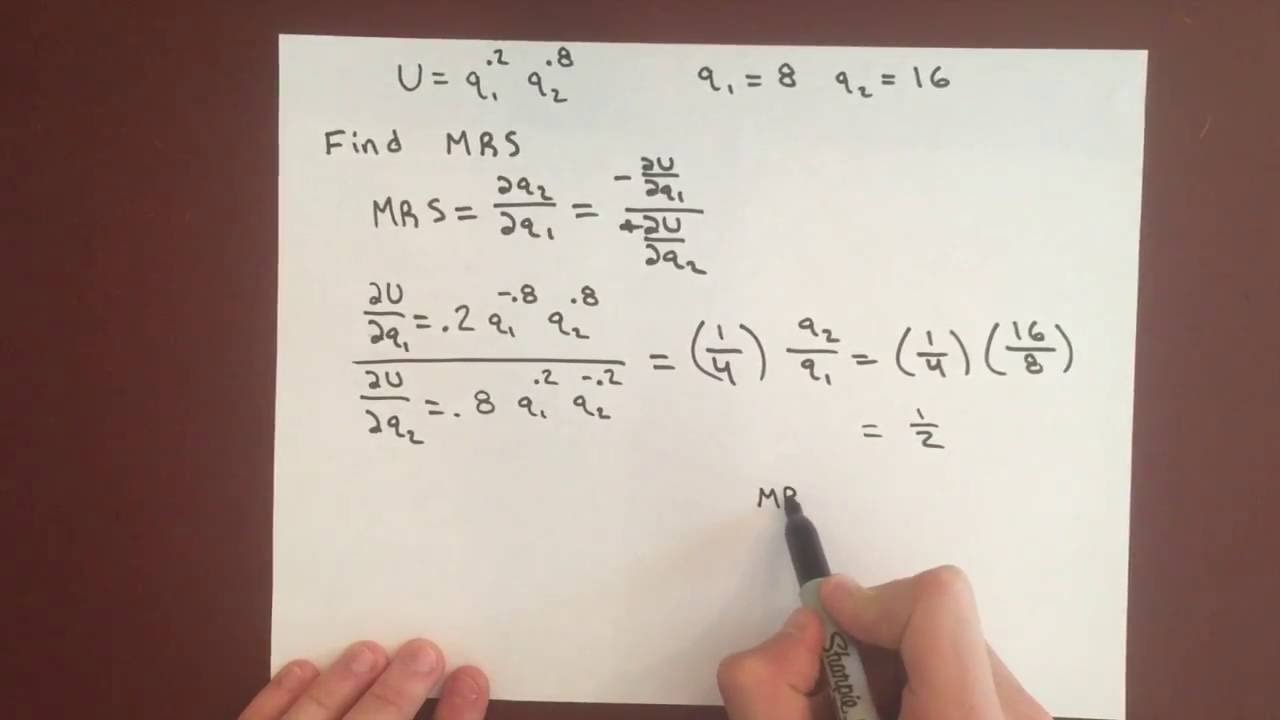 U = q₁^.2 q₂^.8    q₁ = 8  q₂ = 16
Find MRS
MRS = ∂q₂/∂q₁ = (-∂U/∂q₁)/(+∂U/∂q₂)
∂U/∂q₁ = .2 q₁^-.8 q₂^.8
∂U/∂q₂ = .8 q₁^.2 q₂^-.2
= (1/4) q₂/q₁ = (1/4)(16/8)
= 1/2
MR
Sharpie